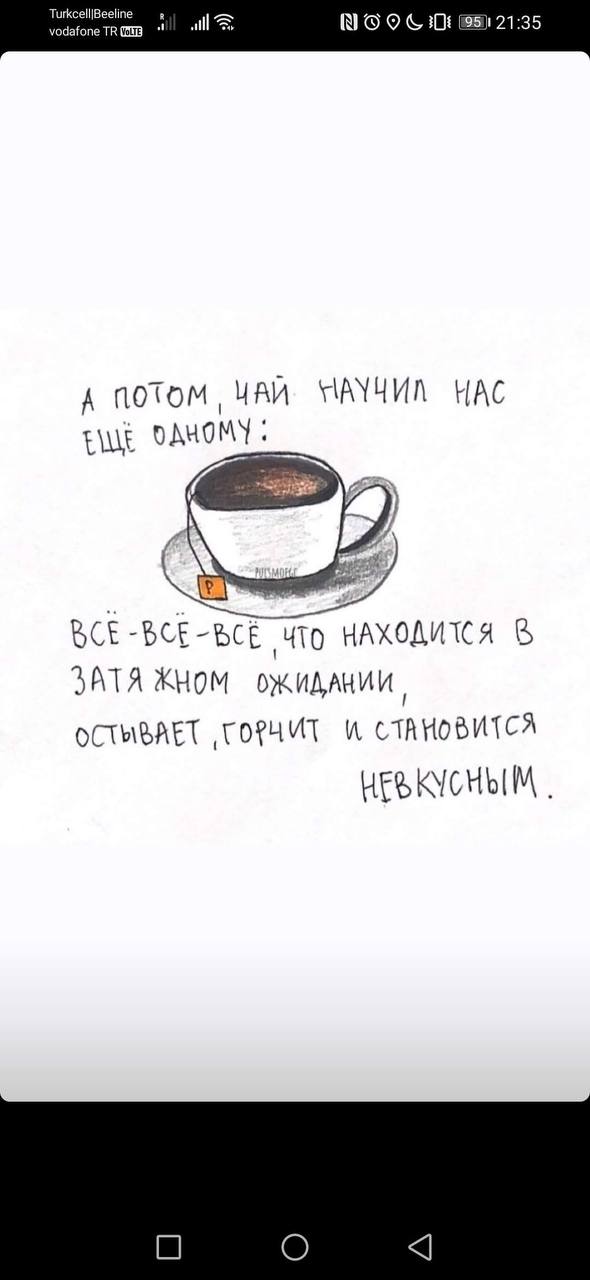 Turkcell|Beeline
vodafone TR VoLTE
R
95 21:35
А ПОТОМ, ЧАЙ НАУЧИЛ НАС
ЕЩЁ ОДНОМУ:
P
ВСЁ-ВСЁ-ВСЁ, ЧТО НАХОДИТСЯ В
ЗАТЯЖНОМ ОЖИДАНИИ,
ОСТЫВАЕТ, ГОРЧИТ И СТАНОВИТСЯ
НЕВКУСНЫМ.